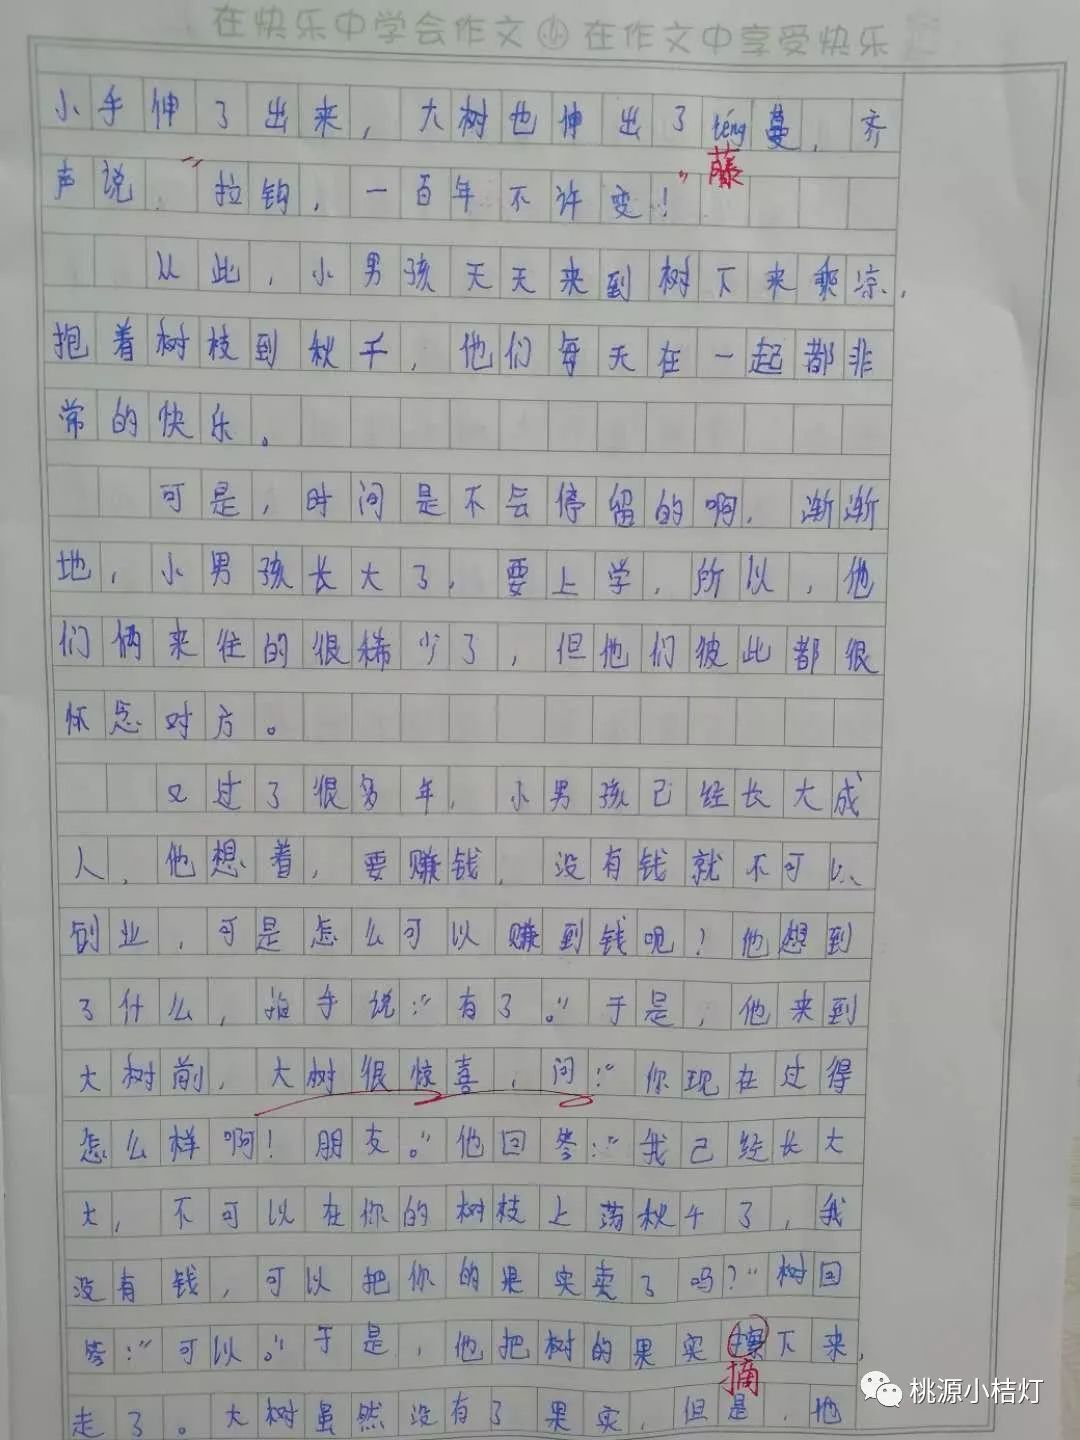 在快乐中学会作文 小 在作文中享受快乐
小手伸了出来，大树也伸出了téng蔓，齐
藤
声说，“拉钩，一百年不许变！”
从此，小男孩天天来到树下来乘凉，
抱着树枝到秋千，他们每天在一起都非
常的快乐。
可是，时间是不会停留的啊，渐渐
地，小男孩长大了，要上学，所以，他
们俩来往的很稀少了，但他们彼此都很
怀念对方。
又过了很多年，小男孩已经长大成
人，他想着，要赚钱，没有钱就不可以
创业，可是怎么可以赚到钱呢？他想到
了什么，拍手说：“有了。”于是，他来到
大树前，大树很惊喜，问：“你现在过得
怎么样啊！朋友。”他回答：“我已经长大
大，不可以在你的树枝上荡秋千了，我
没有钱，可以把你的果实卖了吗？”树回
答：“可以。”于是，他把树的果实下来，
摘
走了。大树虽然没有了果实，但是，地
桃源小桔灯